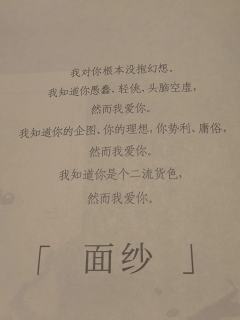 我对你根本没抱幻想。
我知道你愚蠢、轻佻、头脑空虚，
然而我爱你。
我知道你的企图、你的理想，你势利、庸俗，
然而我爱你。
我知道你是个二流货色，
然而我爱你。
「 面纱 」